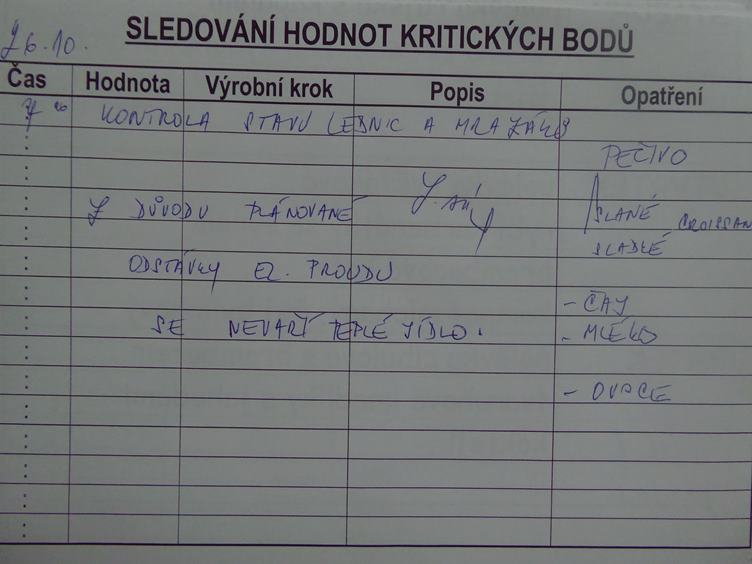 26.10.
SLEDOVÁNÍ HODNOT KRITICKÝCH BODŮ
Čas Hodnota Výrobní krok Popis Opatření
7 00 KONTROLA STAVU LEDNIC A MRAZÁKŮ
PEČIVO
Z DŮVODU PLÁNOVANÉ
SLANÉ CROISSAN
SLADKÉ
ODSTÁVKY EL. PROUDU
- ČAJ
SE NEVAŘÍ TEPLÉ JÍDLO.
- MLÉKO
- OVOCE